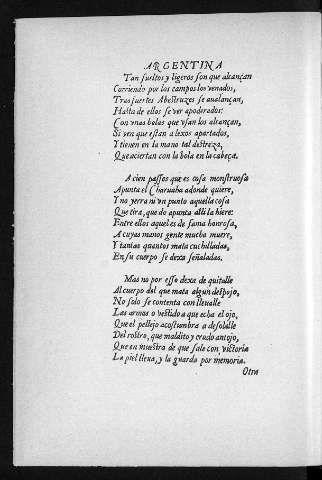 ARGENTINA
Tan sueltos y ligeros son que alcançan
Corriendo por los campos los venados,
Tras fuertes Abestruzes se aualançan,
Hasta de ellos se ver apoderados:
Con vnas bolas que vsan los alcançan,
Si ven que estan a lexos apartados,
Y tienen en la mano tal destreza,
Que aciertan con la bola en la cabeça.
A cien passos que es cosa monstruosa
Apunta el Charuaha adonde quiere,
Y no yerra ni vn punto aquella cosa
Que tira, que do apunta alli la hiere:
Entre ellos aquel es de fama honrosa,
A cuyas manos gente mucha muere,
Y tantas quantos mata cuchilladas,
En su cuerpo se dexa señaladas.
Mas no por esso dexa de quitalle
Al cuerpo del que mata algun despojo,
No solo se contenta con lleualle
Las armas o vestidos a que echa el ojo,
Que el pellejo acostumbra a desolalle
Del rostro, que maldito y crudo antojo,
Que en muestra de que sale con victoria
La piel lleua, y la guarda por memoria.
Otra